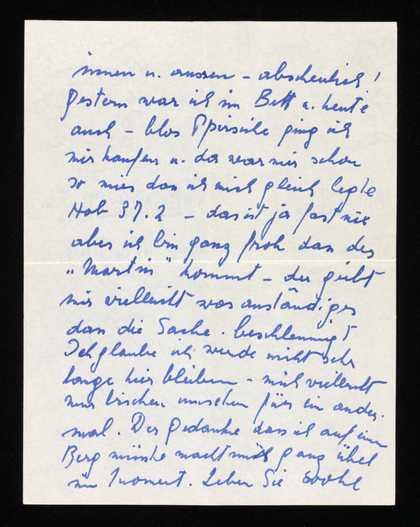 innen u. aussen – abscheulich!
Gestern war ich im Bett u. heute
auch – blos Pfirsiche ging ich
mir kaufen u. da war mir schon
so mies dass ich mich gleich legte
Hab 37.2 – das ist ja fast nix
aber ich bin ganz froh dass der
„Martin" kommt – der giebt
mir vielleicht was anständiges
dass die Sache beschleunigt
Ich glaube ich werde nicht sehr
lange hier bleiben – mich vielleicht
nur bischen umsehen für ein ander-
mal. Der Gedanke dass ich auf einen
Berg müsste macht mich ganz übel
im Moment. Leben Sie wohl